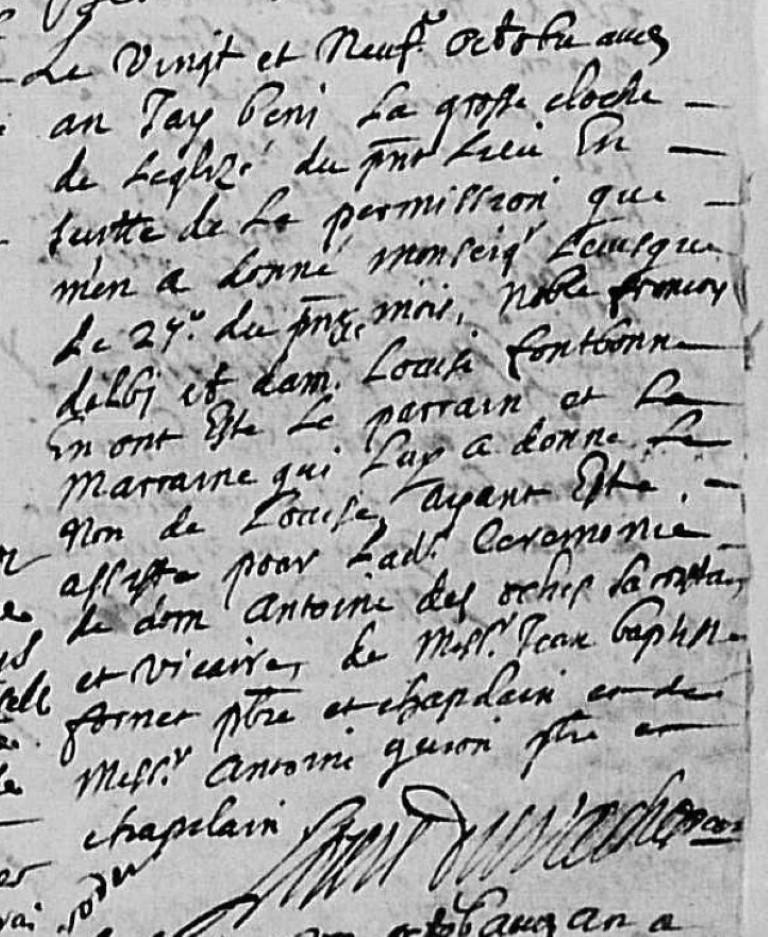 Le vingt et neuf.e octobre aud
an Jay beni La grosse cloche
de Leglize du pnt Lieu En
suitte de La permission que
m'en a donné monseigr Levesque
Le 27.e du pnt mois, Noble francois
delbj et dam. Louise fontbonne
En ont Este Le parrain et La
Marraine qui Luy a donne Le
Non de Louise, ayant Este
assiste pour Lad. Ceremonie
de dom Antoine des oches sacristain
et vicaire, de Messr. Jean baptiste
fornet pbre et chapelain et de
Messr. Antoine guion pbre et
chapelain
octob aud an a